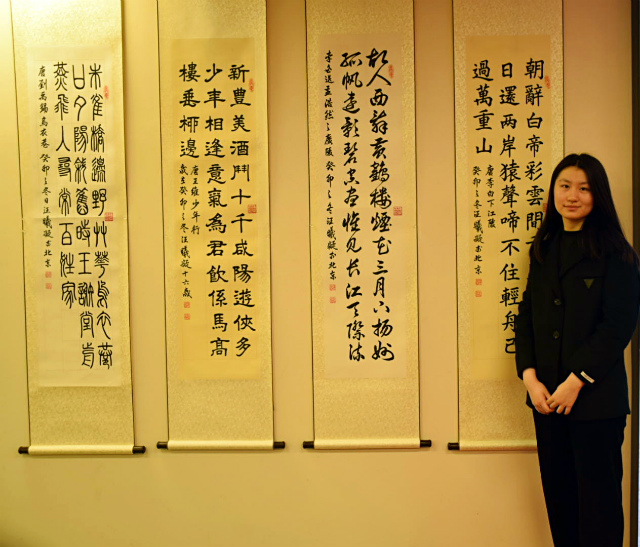 朝辭白帝彩雲間
日還兩岸猿聲啼不住輕舟已
過萬重山
唐李白下江陵
癸卯之冬汪曦凝於北京
故人西辭黃鶴樓煙花三月下揚州
孤帆遠影碧空盡惟見長江天際流
李白送孟浩然之廣陵癸卯之冬汪曦凝於北京
新豐美酒鬥十千咸陽遊俠多
少年相逢意氣為君飲係馬高
樓垂柳邊
唐王維少年行
歲在癸卯之冬汪曦凝十六歲
朱雀橋邊野艸華烏衣巷
口夕陽斜舊時王謝堂前
燕飛入尋常百姓家
唐劉禹錫烏衣巷癸卯之冬日汪曦凝於北京